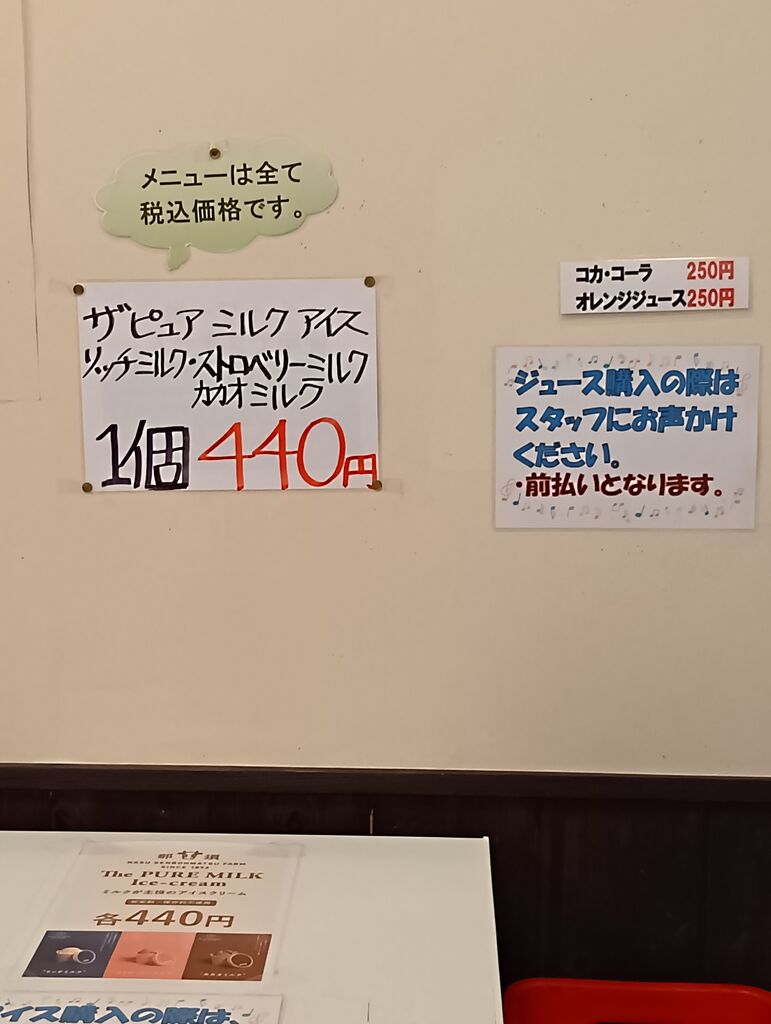 メニューは全て
税込価格です。
ザピュア ミルク アイス
リッチミルク・ストロベリーミルク
カカオミルク
1個 440円
コカ・コーラ 250円
オレンジジュース250円
ジュース購入の際は
スタッフにお声かけ
ください。
・前払いとなります。
那須
NASU SENBONMATSU FARM
SINCE 1893
The PURE MILK
Ice-cream
ミルクが主役のアイスクリーム
各440円
アイス購入の際は、